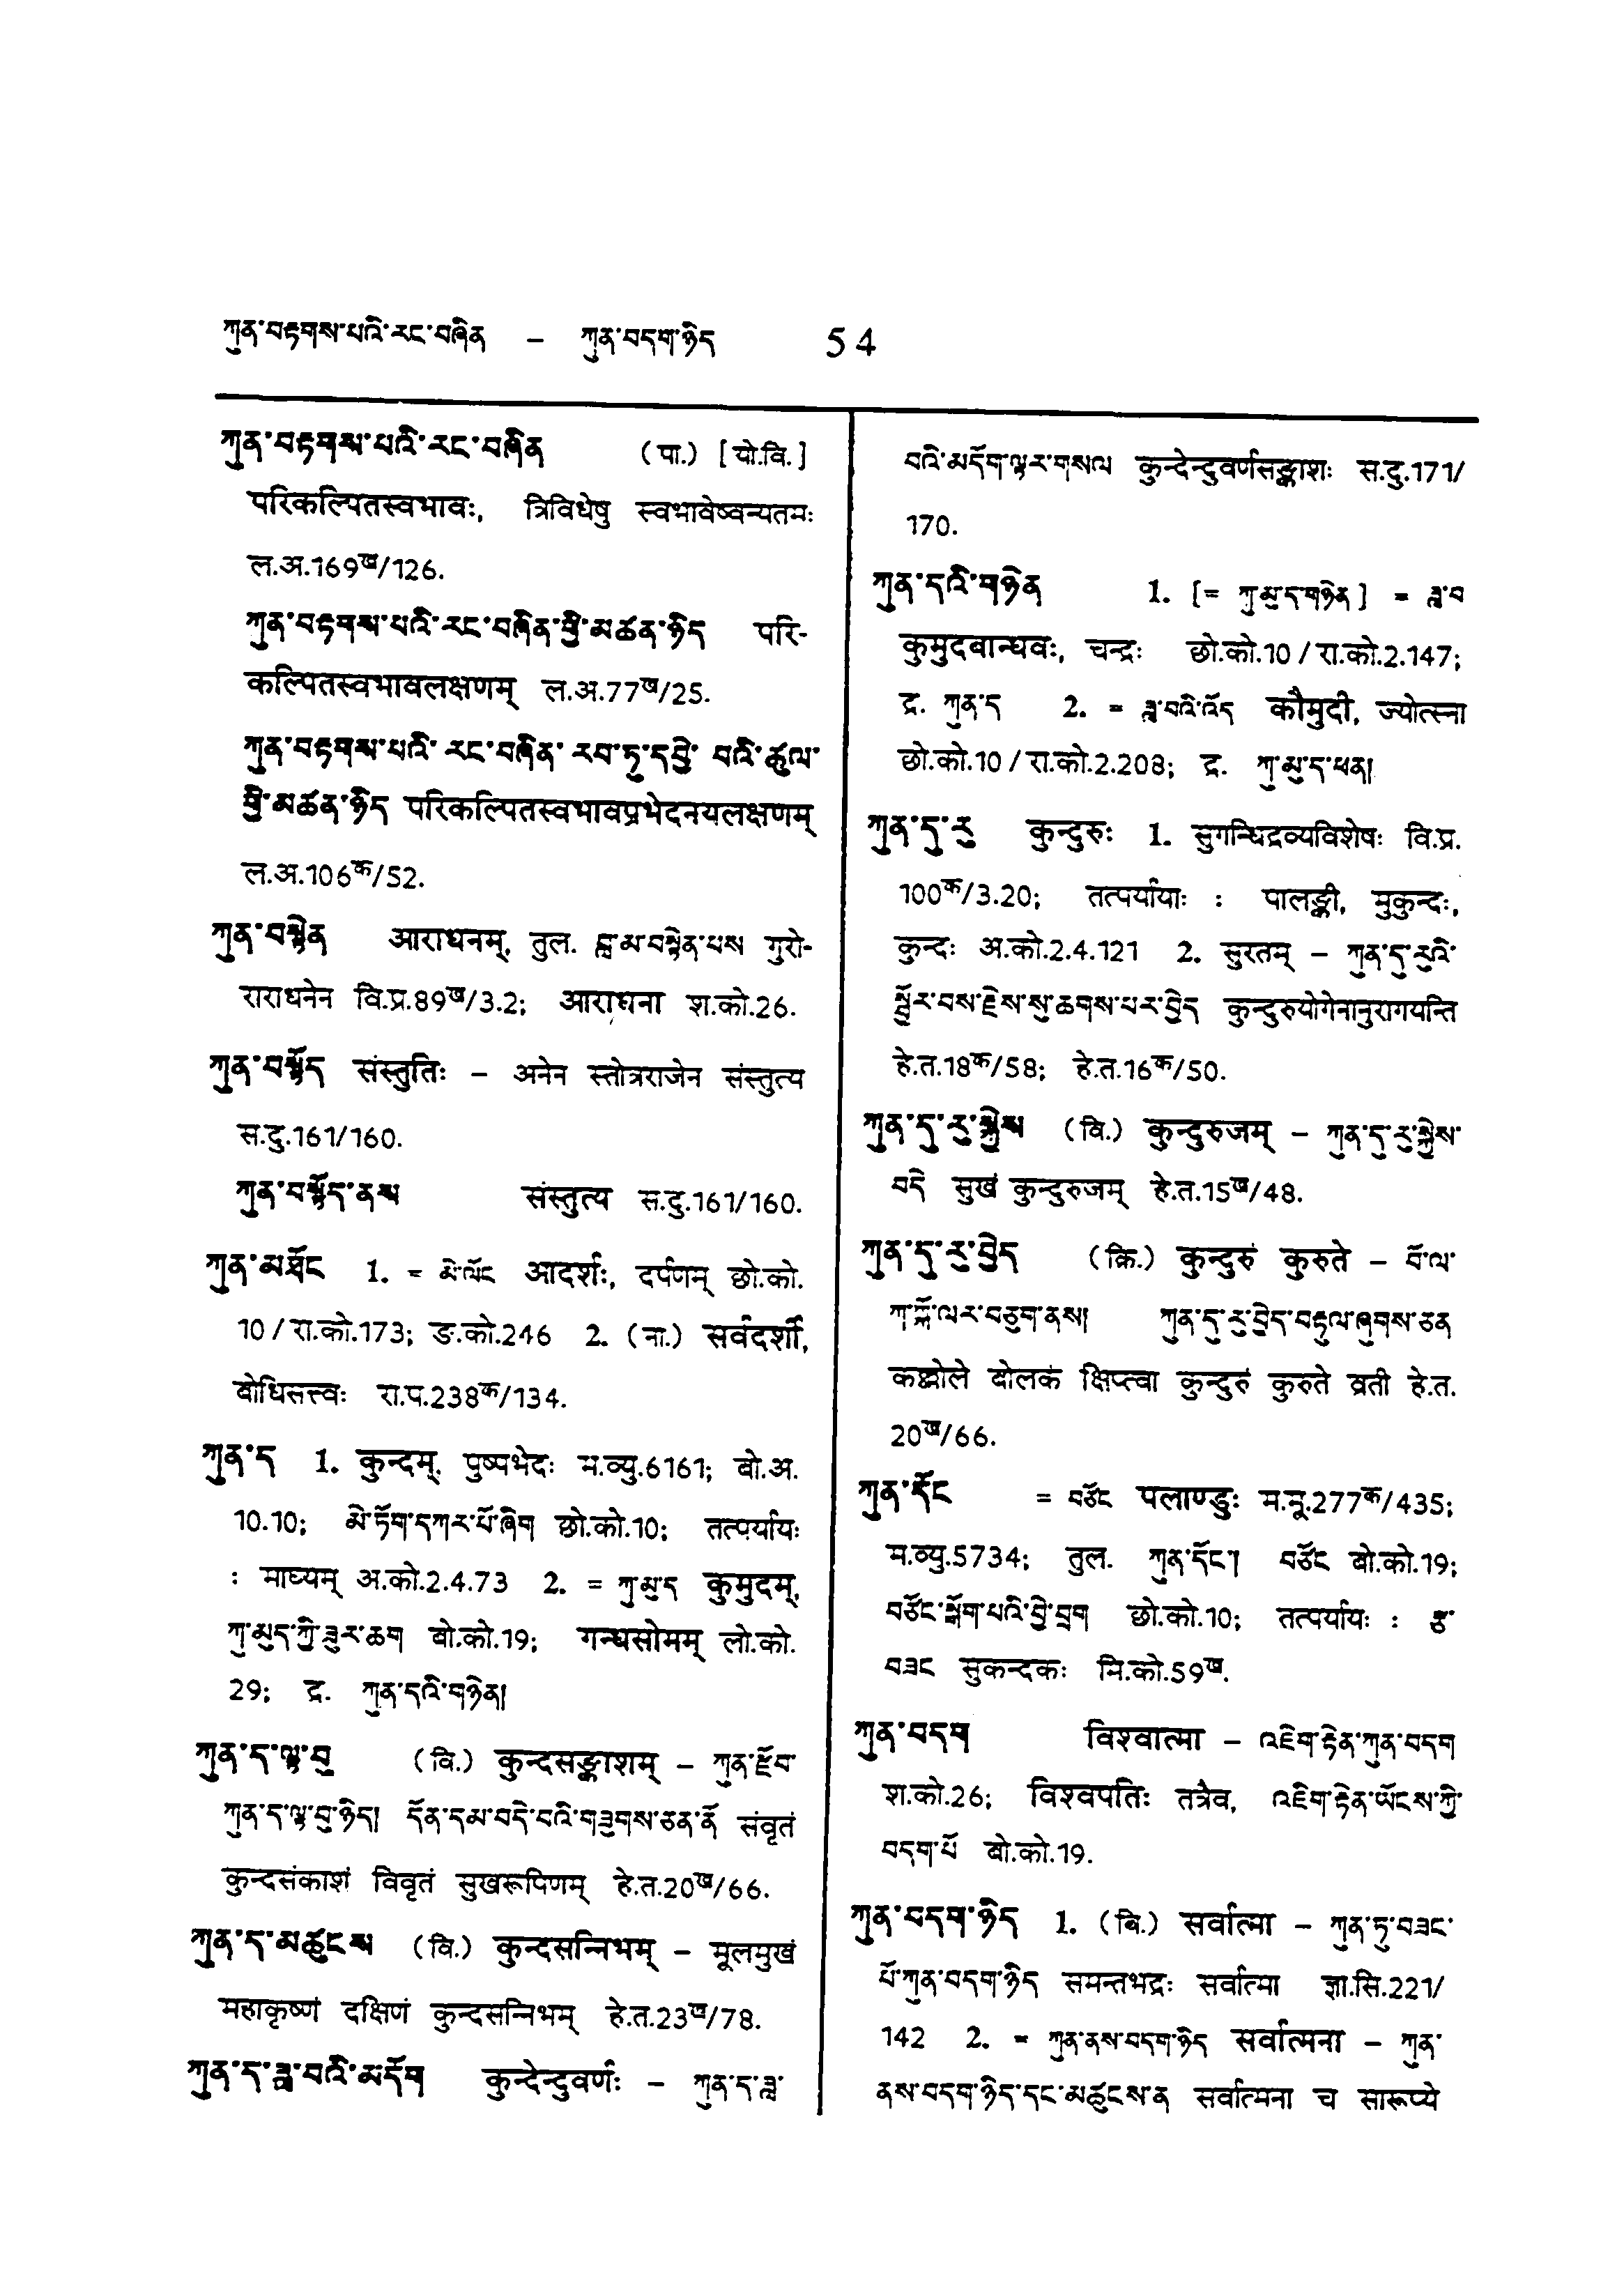 ཀུན་བརྟགས་པའི་རང་བཞིན – ཀུན་བདག་ཉིད 54
ཀུན་བརྟགས་པའི་རང་བཞིན (पा.) [यो.वि.]
परिकल्पितस्वभावः, त्रिविधेषु स्वभावेष्वन्यतमः
ल.अ.169ख/126.
ཀུན་བརྟགས་པའི་རང་བཞིན་གྱི་མཚན་ཉིད परि-
कल्पितस्वभावलक्षणम् ल.अ.77ख/25.
ཀུན་བརྟགས་པའི་ རང་བཞིན་ རབ་ཏུ་དབྱེ་ བའི་ཚུལ་
གྱི་མཚན་ཉིད परिकल्पितस्वभावप्रभेदनयलक्षणम्
ल.अ.106क/52.
ཀུན་བསྙེན आराधनम्, तुल. བླ་མ་བསྙེན་པས गुरो-
राराधनेन वि.प्र.89ख/3.2; आराधना श.को.26.
ཀུན་བསྟོད संस्तुतिः – अनेन स्तोत्रराजेन संस्तुत्य
स.दु.161/160.
ཀུན་བསྟོད་ནས संस्तुत्य स.दु.161/160.
ཀུན་མཐོང 1. = མེ་ལོང आदर्शः, दर्पणम् छो.को.
10/रा.को.173; ङ.को.246 2. (ना.) सर्वदर्शी,
बोधिसत्त्वः रा.प.238क/134.
ཀུན་ད 1. कुन्दम्, पुष्पभेदः म.व्यु.6161; बो.अ.
10.10; མེ་ཏོག་དཀར་པོ་ཞིག छो.को.10; तत्पर्यायः
: माघ्यम् अ.को.2.4.73 2. = ཀུ་མུ་ད कुमुदम्,
ཀུ་མུད་ཀྱི་ཟུར་ཆག बो.को.19; गन्धसोमम् लो.को.
29; द्र. ཀུན་དའི་གཉེན།
ཀུན་ད་ལྟ་བུ (वि.) कुन्दसङ्काशम् – ཀུན་རྫོབ་
ཀུན་ད་ལྟ་བུ་ཉིད། དོན་དམ་བདེ་བའི་གཟུགས་ཅན་ནོ संवृतं
कुन्दसंकाशं विवृतं सुखरूपिणम् हे.त.20ख/66.
ཀུན་ད་མཚུངས (वि.) कुन्दसन्निभम् – मूलमुखं
महाकृष्णं दक्षिणं कुन्दसन्निभम् हे.त.23ख/78.
ཀུན་ད་ཟླ་བའི་མདོག कुन्देन्दुवर्णः – ཀུན་ད་ཟླ་
བའི་མདོག་ལྟར་གསལ कुन्देन्दुवर्णसङ्काशः स.दु.171/
170.
ཀུན་དའི་གཉེན 1. [= ཀུ་མུ་ད་གཉེན] = ཟླ་བ
कुमुदबान्धवः, चन्द्रः छो.को.10/रा.को.2.147;
द्र. ཀུན་ད 2. = ཟླ་བའི་འོད कौमुदी, ज्योत्स्ना
छो.को.10/रा.को.2.208; द्र. ཀུ་མུ་ད་ཕན།
ཀུན་དུ་རུ कुन्दुरुः 1. सुगन्धिद्रव्यविशेषः वि.प्र.
100क/3.20; तत्पर्यायाः : पालङ्की, मुकुन्दः,
कुन्दः अ.को.2.4.121 2. सुरतम् – ཀུན་དུ་རུའི་
སྦྱོར་བས་རྗེས་སུ་ཆགས་པར་བྱེད कुन्दुरुयोगेनानुरागयन्ति
हे.त.18क/58; हे.त.16क/50.
ཀུན་དུ་རུ་སྐྱེས (वि.) कुन्दुरुजम् – ཀུན་དུ་རུ་སྐྱེས་
བདེ सुखं कुन्दुरुजम् हे.त.15ख/48.
ཀུན་དུ་རུ་བྱེད (क्रि.) कुन्दुरुं कुरुते – བོ་ལ་
ཀ་ཀྐོ་ལར་བཅུག་ནས། ཀུན་དུ་རུ་བྱེད་བརྟུལ་ཞུགས་ཅན
कक्कोले बोलकं क्षिप्त्वा कुन्दुरुं कुरुते व्रती हे.त.
20ख/66.
ཀུན་དོང = བཙོང पलाण्डुः म.मू.277क/435;
म.व्यु.5734; तुल. ཀུན་དོང་། བཙོང बो.को.19;
བཙོང་སྒོག་པའི་བྱེ་བྲག छो.को.10; तत्पर्यायः : རྩ་
བཟང सुकन्दकः मि.को.59ख.
ཀུན་བདག विश्वात्मा – འཇིག་རྟེན་ཀུན་བདག
श.को.26; विश्वपतिः तत्रैव, འཇིག་རྟེན་ཡོངས་ཀྱི་
བདག་པོ बो.को.19.
ཀུན་བདག་ཉིད 1. (वि.) सर्वात्मा – ཀུན་ཏུ་བཟང་
པོ་ཀུན་བདག་ཉིད समन्तभद्रः सर्वात्मा ज्ञा.सि.221/
142 2. = ཀུན་ནས་བདག་ཉིད सर्वात्मना – ཀུན་
ནས་བདག་ཉིད་དང་མཚུངས་ན सर्वात्मना च सारूप्ये